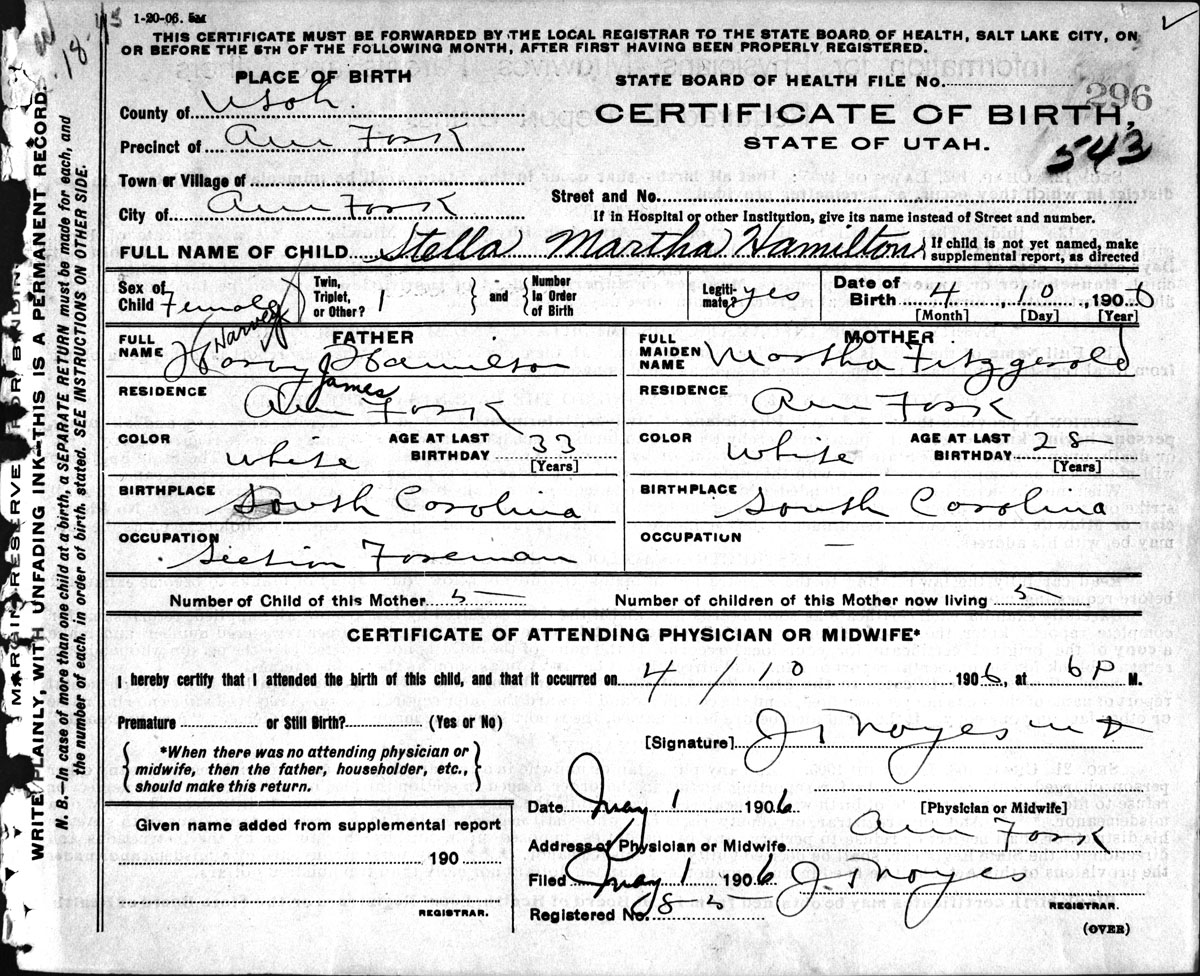 1-20-06. 5M
THIS CERTIFICATE MUST BE FORWARDED BY THE LOCAL REGISTRAR TO THE STATE BOARD OF HEALTH, SALT LAKE CITY, ON
OR BEFORE THE 5TH OF THE FOLLOWING MONTH, AFTER FIRST HAVING BEEN PROPERLY REGISTERED.
18
MARGIN RESERVED FOR BINDING
WRITE PLAINLY, WITH UNFADING INK—THIS IS A PERMANENT RECORD.
N. B.—In case of more than one child at a birth, a SEPARATE RETURN must be made for each, and
the number of each, in order of birth, stated. SEE INSTRUCTIONS ON OTHER SIDE.
PLACE OF BIRTH
County of Utah.
Precinct of Am Fork
Town or Village of
City of Am Fork
STATE BOARD OF HEALTH FILE No. 296
CERTIFICATE OF BIRTH,
STATE OF UTAH.
543
Street and No.
If in Hospital or other Institution, give its name instead of Street and number.
FULL NAME OF CHILD Stella Martha Hamilton
If child is not yet named, make
supplemental report, as directed
Sex of Child Female
Twin, Triplet, or Other? 1
and
Number In Order of Birth
Legitimate? yes
Date of Birth 4, 10, 1906
[Month] [Day] [Year]
FATHER
Harvey
FULL NAME Harvy J Hamilson
James
RESIDENCE Am Fork
COLOR White
AGE AT LAST BIRTHDAY 33
[Years]
BIRTHPLACE South Carolina
OCCUPATION Section Foreman
MOTHER
FULL MAIDEN NAME Martha Fitzgerald
RESIDENCE Am Fork
COLOR White
AGE AT LAST BIRTHDAY 28
[Years]
BIRTHPLACE South Carolina
OCCUPATION —
Number of Child of this Mother 5 —
Number of children of this Mother now living 5
CERTIFICATE OF ATTENDING PHYSICIAN OR MIDWIFE*
I hereby certify that I attended the birth of this child, and that it occurred on 4 / 10 1906, at 6 P M.
Premature or Still Birth? (Yes or No)
*When there was no attending physician or
midwife, then the father, householder, etc.,
should make this return.
[Signature] J. Noyes M D
Date May 1 1906
[Physician or Midwife]
Address of Physician or Midwife Am Fork
Given name added from supplemental report
190
REGISTRAR.
Filed May 1 1906 J. Noyes
Registered No.
REGISTRAR.
(OVER)